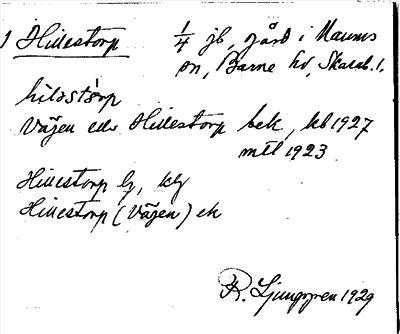 1 Hillestorp 1/4 jb, gård i Naums
sn, Barne hd, Skarab. l.
hìləstòrp
Vägen eller Hillestorp bek, kb 1927
mtl 1923
Hillestorp by, kbg
Hillestorp (Vägen) ek
R. Ljunggren 1929